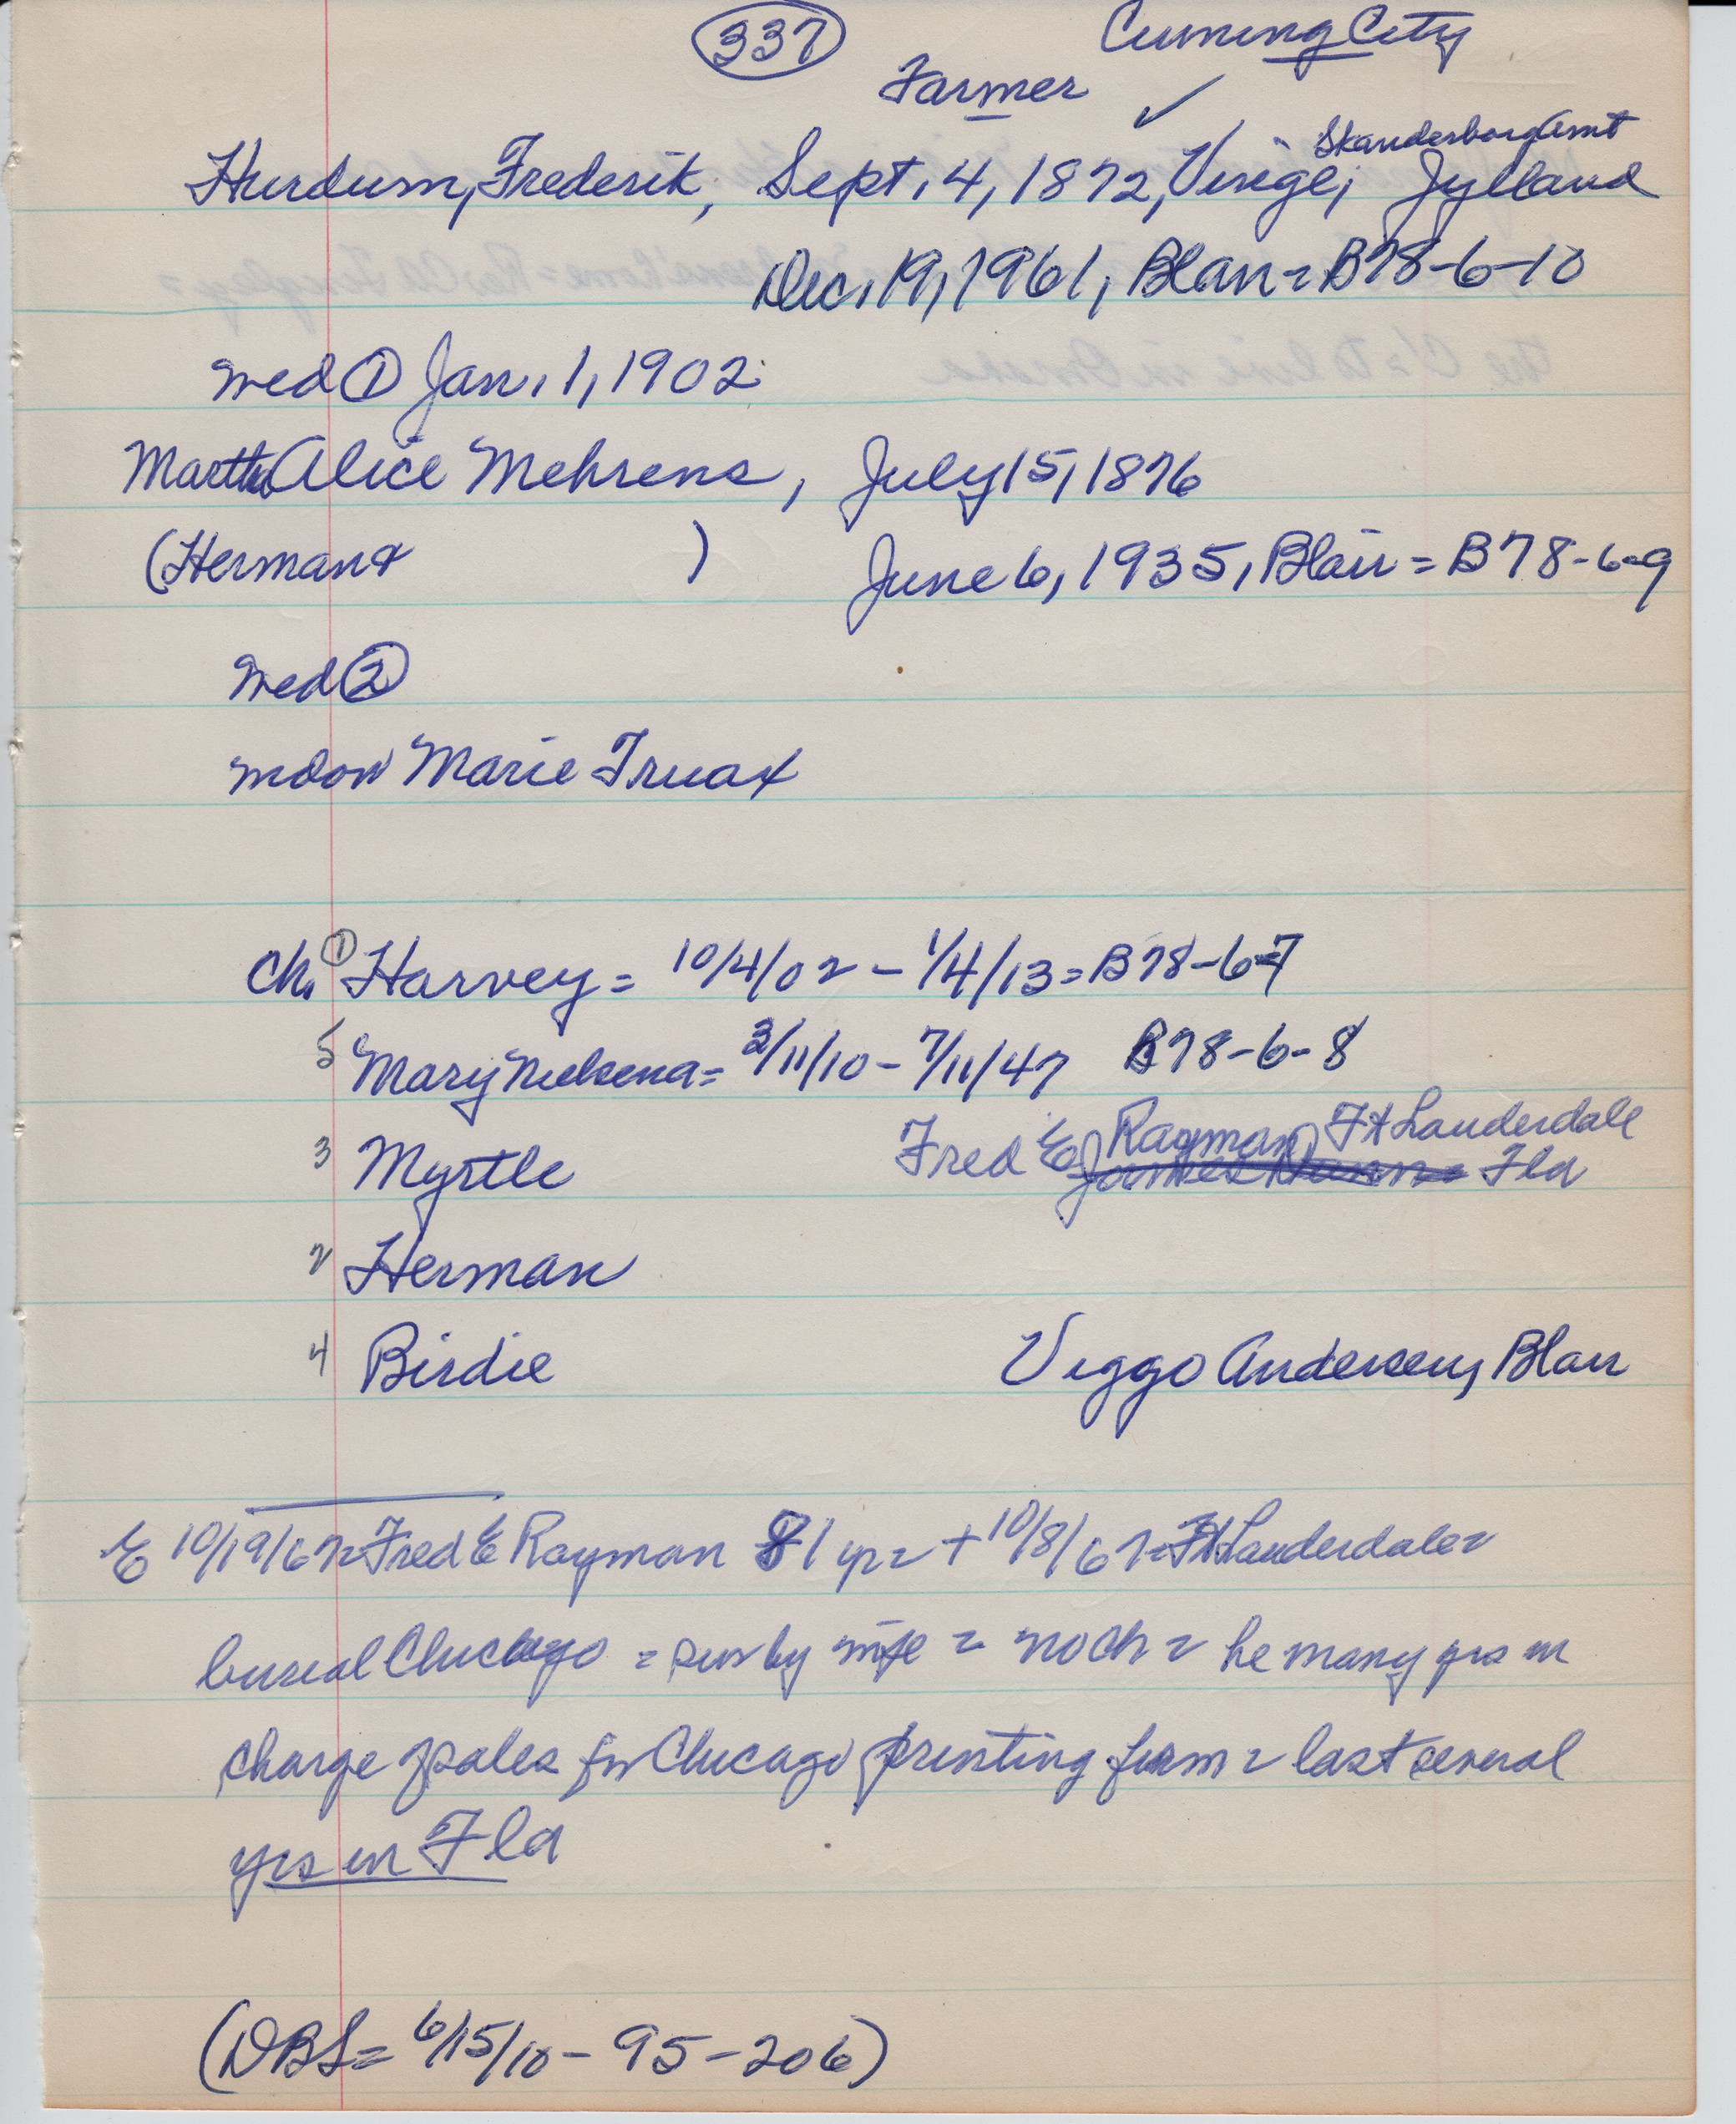 337
Cuming City
Farmer ✓
Skanderborg Amt
Hurdum, Frederik, Sept. 4, 1872, Jylland
Dec. 19, 1961, Blair = B78-6-10
wed ① Jan. 1, 1902
Martha Alice Mehrens, July 15, 1876
(Herman & ) June 6, 1935, Blair = B78-6-9
wed ②
widow Marie Truax
Ch. ① Harvey = 10/4/02 - 1/4/13 = B78-6-7
5 Mary Nielsena = 3/11/10 - 7/11/47 B78-6-8
Rayman Ft Lauderdale
3 Myrtle Fred E James Fla
2 Herman
4 Birdie Viggo Andersen, Blair
E 10/19/67 = Fred E Rayman 81 yr = + 10/8/67 = Ft Lauderdale =
burial Chicago = sur by wife = no ch = he many yrs in
charge of sales for Chicago printing firm = last several
yrs in Fla
(DBS = 6/15/10 - 95 - 206)